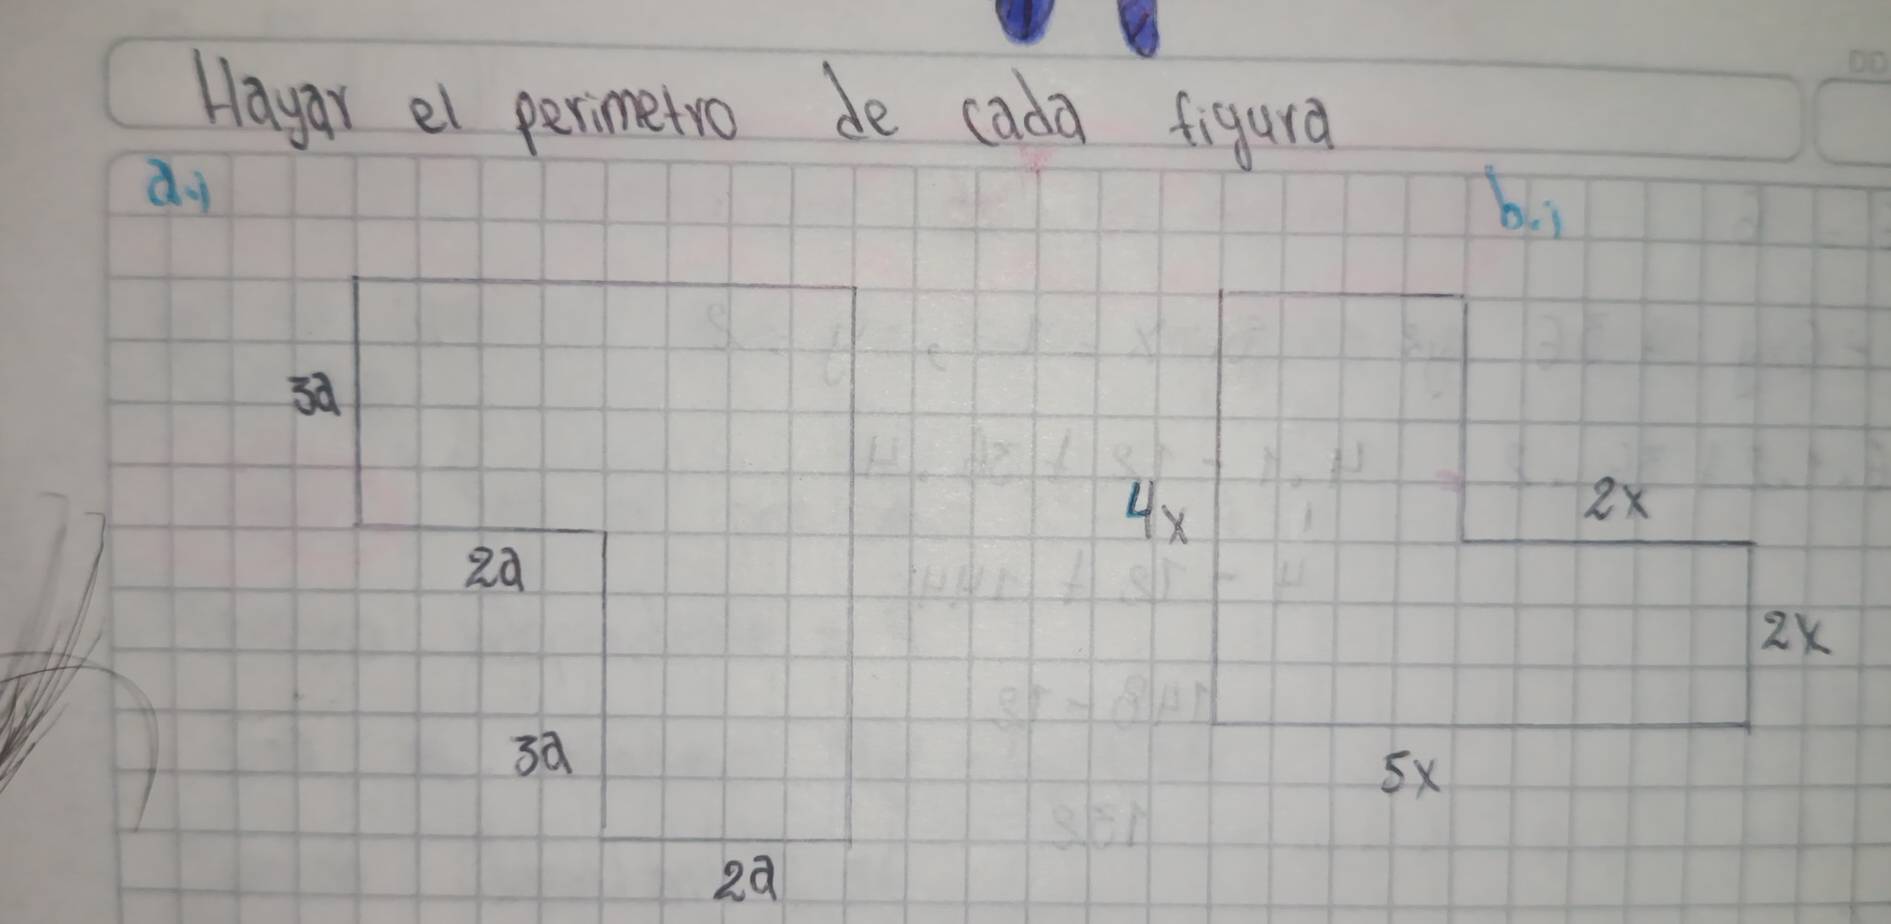 Hayar el perimetro de cada figura
a.)
b.)
3a
2a
3a
2a
4x
2x
2x
5x